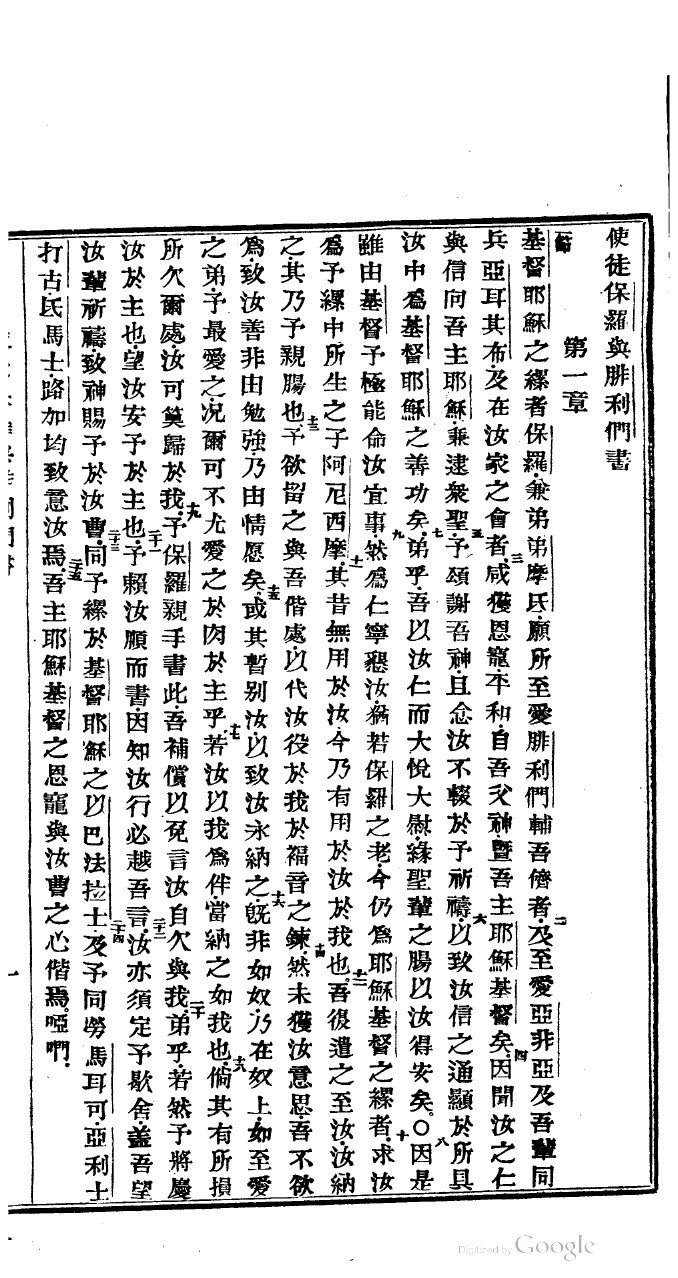 使徒保羅與腓利們書
第一章
一節
基督耶穌之縲者保羅兼弟弟摩氏願所至愛腓利們輔吾儕者二及至愛亞非亞及吾輩同
兵亞耳其布及在汝家之會者三咸獲恩寵平和自吾父神暨吾主耶穌基督矣四因聞汝之仁
與信向吾主耶穌兼逮衆聖五予頌謝吾神且念汝不輟於予祈禱六以致汝信之通顯於所具
汝中爲基督耶穌之善功矣七弟乎吾以汝仁而大悅大慰緣聖輩之腸以汝得安矣〇八因是
雖由基督予極能命汝宜事九然爲仁寧懇汝猶若保羅之老今仍爲耶穌基督之縲者十求汝
爲予縲中所生之子阿尼西摩十一其昔無用於汝今乃有用於汝於我也十二吾復遣之至汝汝納
之其乃予親腸也十三予欲留之與吾偕處以代汝役於我於福音之鍊十四然未獲汝意思吾不欲
爲致汝善非由勉強乃由情愿矣十五或其暫別汝以致汝永納之十六旣非如奴乃在奴上如至愛
之弟予最愛之况爾可不尤愛之於肉於主乎十七若汝以我爲伴當納之如我也十八倘其有所損
所欠爾處汝可算歸於我十九予保羅親手書此吾補償以免言汝自欠與我二十弟乎若然予將慶
汝於主也望汝安予於主也二十一予賴汝順而書因知汝行必越吾言二十二汝亦須定予歇舍盖吾望
汝輩祈禱致神賜予於汝曹二十三同予縲於基督耶穌之以巴法拉士二十四及予同勞馬耳可亞利士
打古氏馬士路加均致意汝焉二十五吾主耶穌基督之恩寵與汝曹之心偕焉啞們
一
Digitized by Google